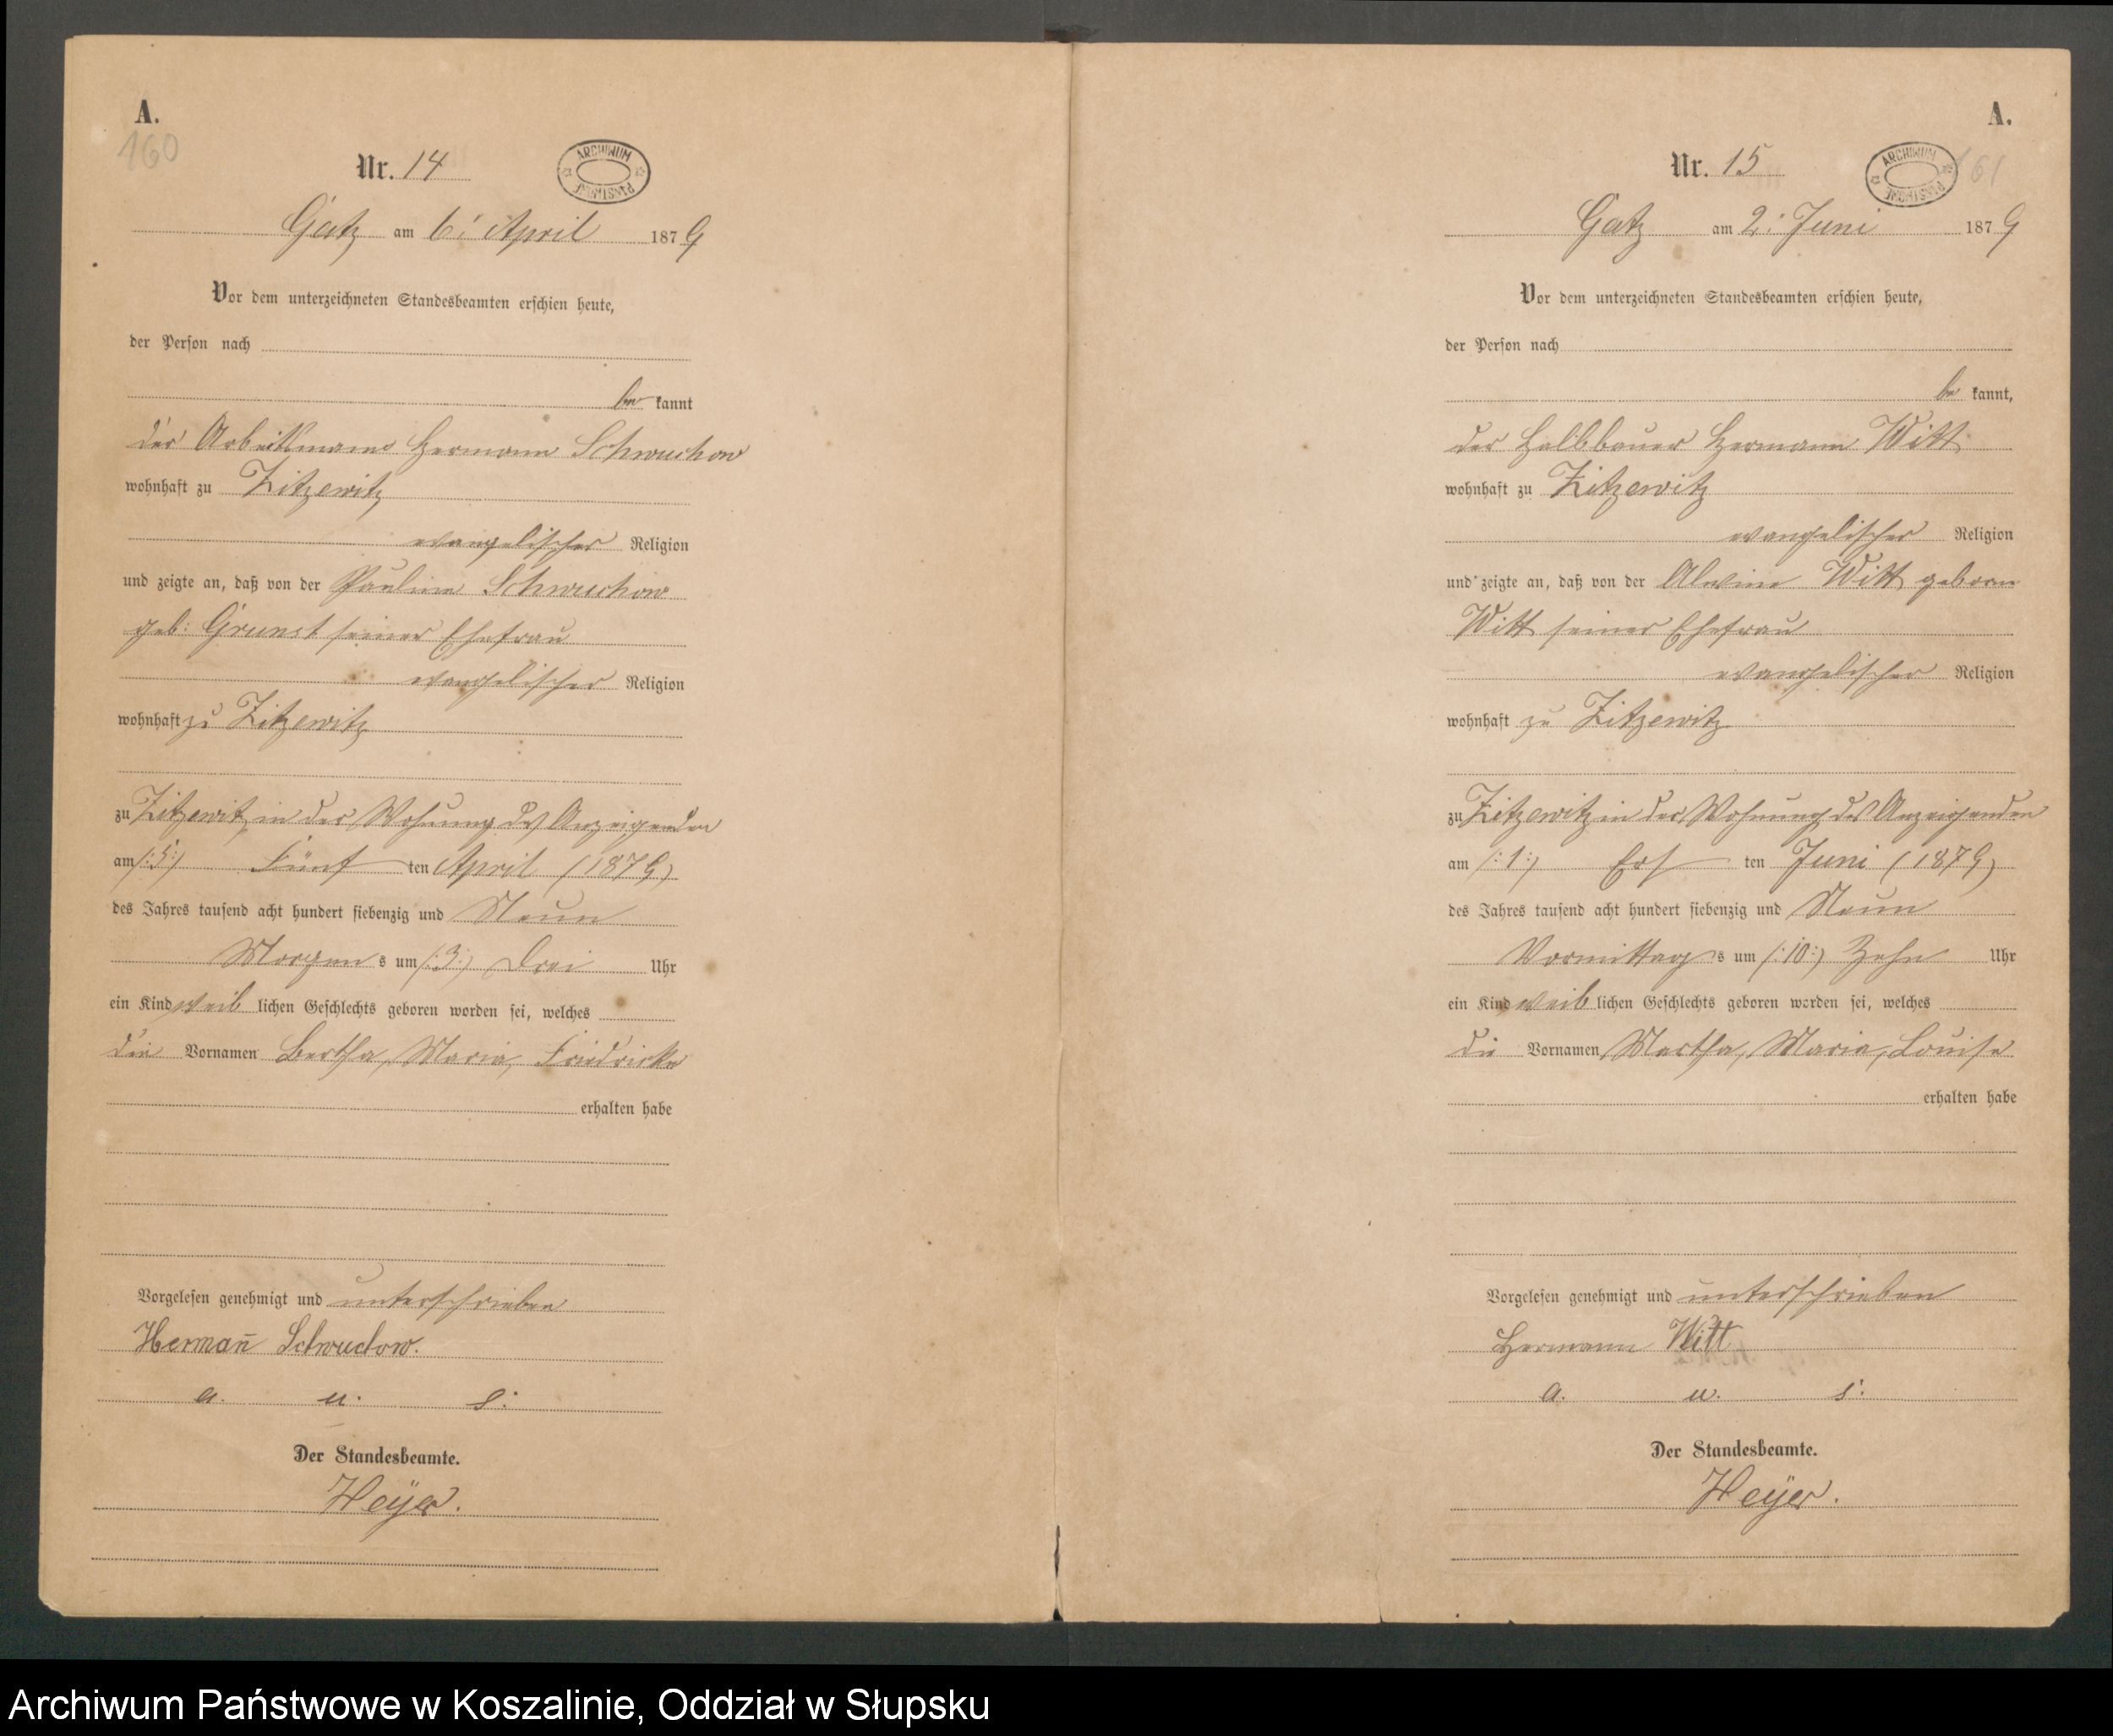 A.
160
Nr. 14
ARCHIWUM PAŃSTWOWE
Gatz am 6: April 1879
Vor dem unterzeichneten Standesbeamten erschien heute,
der Person nach
be kannt
der Arbeitsmann Hermann Schwuchow
wohnhaft zu Zitzewitz
evangelischer Religion
und zeigte an, daß von der Pauline Schwuchow
geb: Grunst seiner Ehefrau
evangelischer Religion
wohnhaft zu Zitzewitz
zu Zitzewitz in der Wohnung des Anzeigenden
am /:5:/ Fünf ten April (1879)
des Jahres tausend acht hundert siebenzig und Neun
Morgen s um /:3:/ Drei Uhr
ein Kind weib lichen Geschlechts geboren worden sei, welches
die Vornamen Bertha, Maria, Friedricke
erhalten habe
Vorgelesen genehmigt und unterschrieben
Herman̄ Schwuchow.
a. u. s.
Der Standesbeamte.
Heÿer.
A.
161
Nr. 15
ARCHIWUM PAŃSTWOWE
Gatz am 2: Juni 1879
Vor dem unterzeichneten Standesbeamten erschien heute,
der Person nach
be kannt,
der Halbbauer Hermann Witt
wohnhaft zu Zitzewitz
evangelischer Religion
und zeigte an, daß von der Alwine Witt geborne
Witt seiner Ehefrau
evangelischer Religion
wohnhaft zu Zitzewitz
zu Zitzewitz in der Wohnung des Anzeigenden
am /:1:/ Ers ten Juni (1879)
des Jahres tausend acht hundert siebenzig und Neun
Vormittag s um /:10:/ Zehn Uhr
ein Kind weib lichen Geschlechts geboren worden sei, welches
die Vornamen Martha, Maria, Louise
erhalten habe
Vorgelesen genehmigt und unterschrieben
Hermann Witt
a. u. s.
Der Standesbeamte.
Heÿer.
Archiwum Państwowe w Koszalinie, Oddział w Słupsku